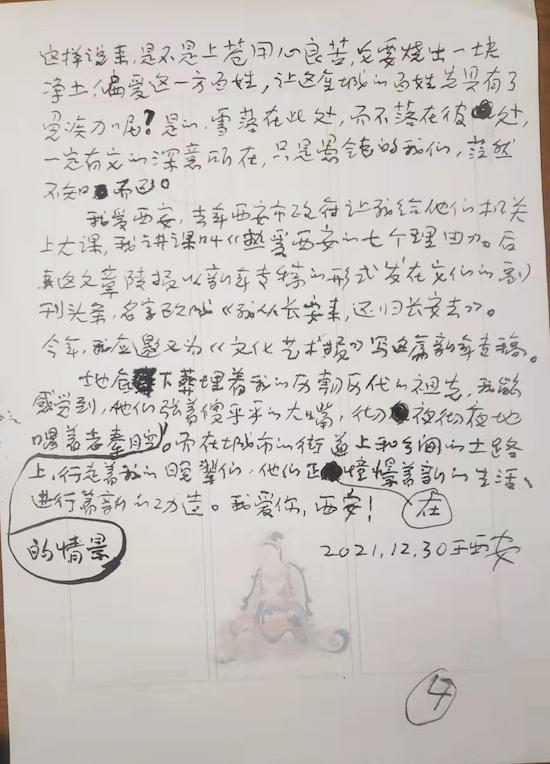 这样说来，是不是上苍用心良苦，它要烧出一块
净土，偏爱这一方百姓，让这全城的百姓先具有了
免疫力呢？是的，雪落在此处，而不落在彼处，
一定有它的深意所在，只是愚钝的我们，茫然
不知而已。
我爱西安，去年西安市政府让我给他们机关
上大课，我讲课叫《热爱西安的七个理由》。后
来这文章陕报以新年专稿的形式发在它们的副
刊头条，名字改成《我从长安来，还归长安去》。
今年，我应邀又为《文化艺术报》写这篇新年专稿。
地底下葬埋着我的历朝历代的祖先，我能
感受到，他们张着傻乎乎的大嘴，彻夜彻夜地
唱着老秦腔。而在城市的街道上和乡间的土路
上，行走着我的晚辈们，他们正憧憬着新的生活，
进行着新的打造。我爱你，西安！
在
的情景
2021.12.30于西安
4